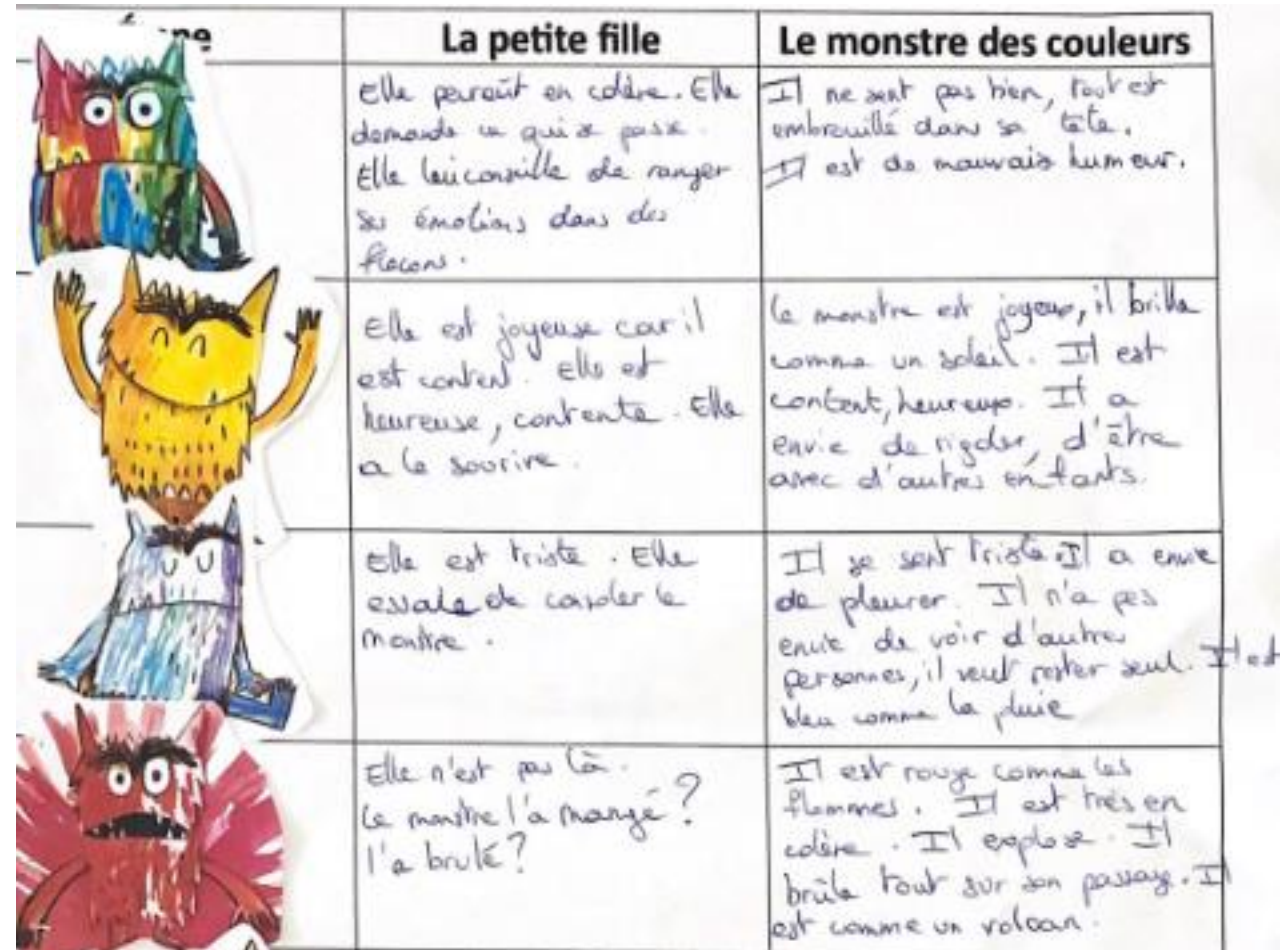 La petite fille
Le monstre des couleurs
Elle paraît en colère. Elle
demande ce qui se passe.
Elle lui conseille de ranger
ses émotions dans des
flacons.
Il ne sent pas bien, tout est
embrouillé dans sa tête.
Il est de mauvais humeur.
Elle est joyeuse car il
est content. Elle est
heureuse, contente. Elle
a le sourire.
Le monstre est joyeux, il brille
comme un soleil. Il est
content, heureux. Il a
envie de rigoler, d'être
avec d'autres enfants.
Elle est triste. Elle
essaie de consoler le
monstre.
Il se sent triste. Il a envie
de pleurer. Il n'a pas
envie de voir d'autres
personnes, il veut rester seul. Il est
bleu comme la pluie
Elle n'est pas là.
Le monstre l'a mangé?
l'a brulé?
Il est rouge comme les
flammes. Il est très en
colère. Il explose. Il
brûle tout sur son passage. Il
est comme un volcan.